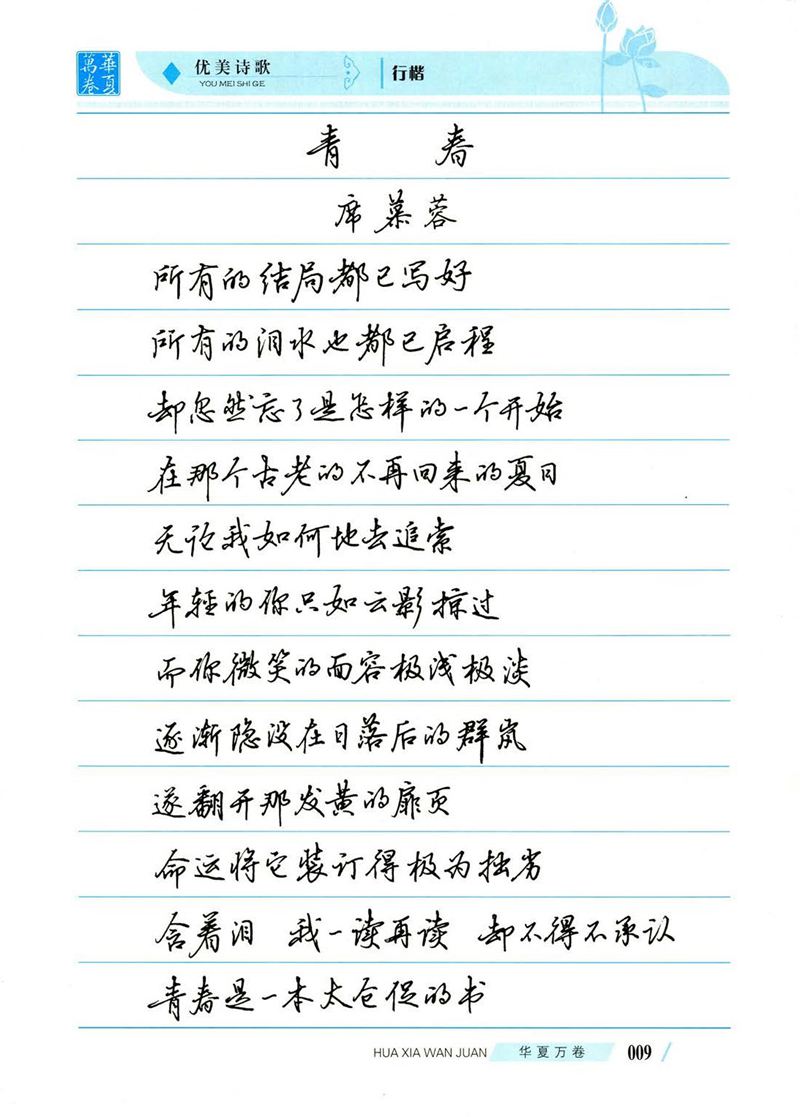 華夏
萬卷
优美诗歌
YOU MEI SHI GE
行楷
青 春
席慕蓉
所有的结局都已写好
所有的泪水也都已启程
却忽然忘了是怎样的一个开始
在那个古老的不再回来的夏日
无论我如何地去追索
年轻的你只如云影掠过
而你微笑的面容极浅极淡
逐渐隐没在日落后的群岚
遂翻开那发黄的扉页
命运将它装订得极为拙劣
含着泪 我一读再读 却不得不承认
青春是一本太仓促的书
HUA XIA WAN JUAN 华夏万卷 009